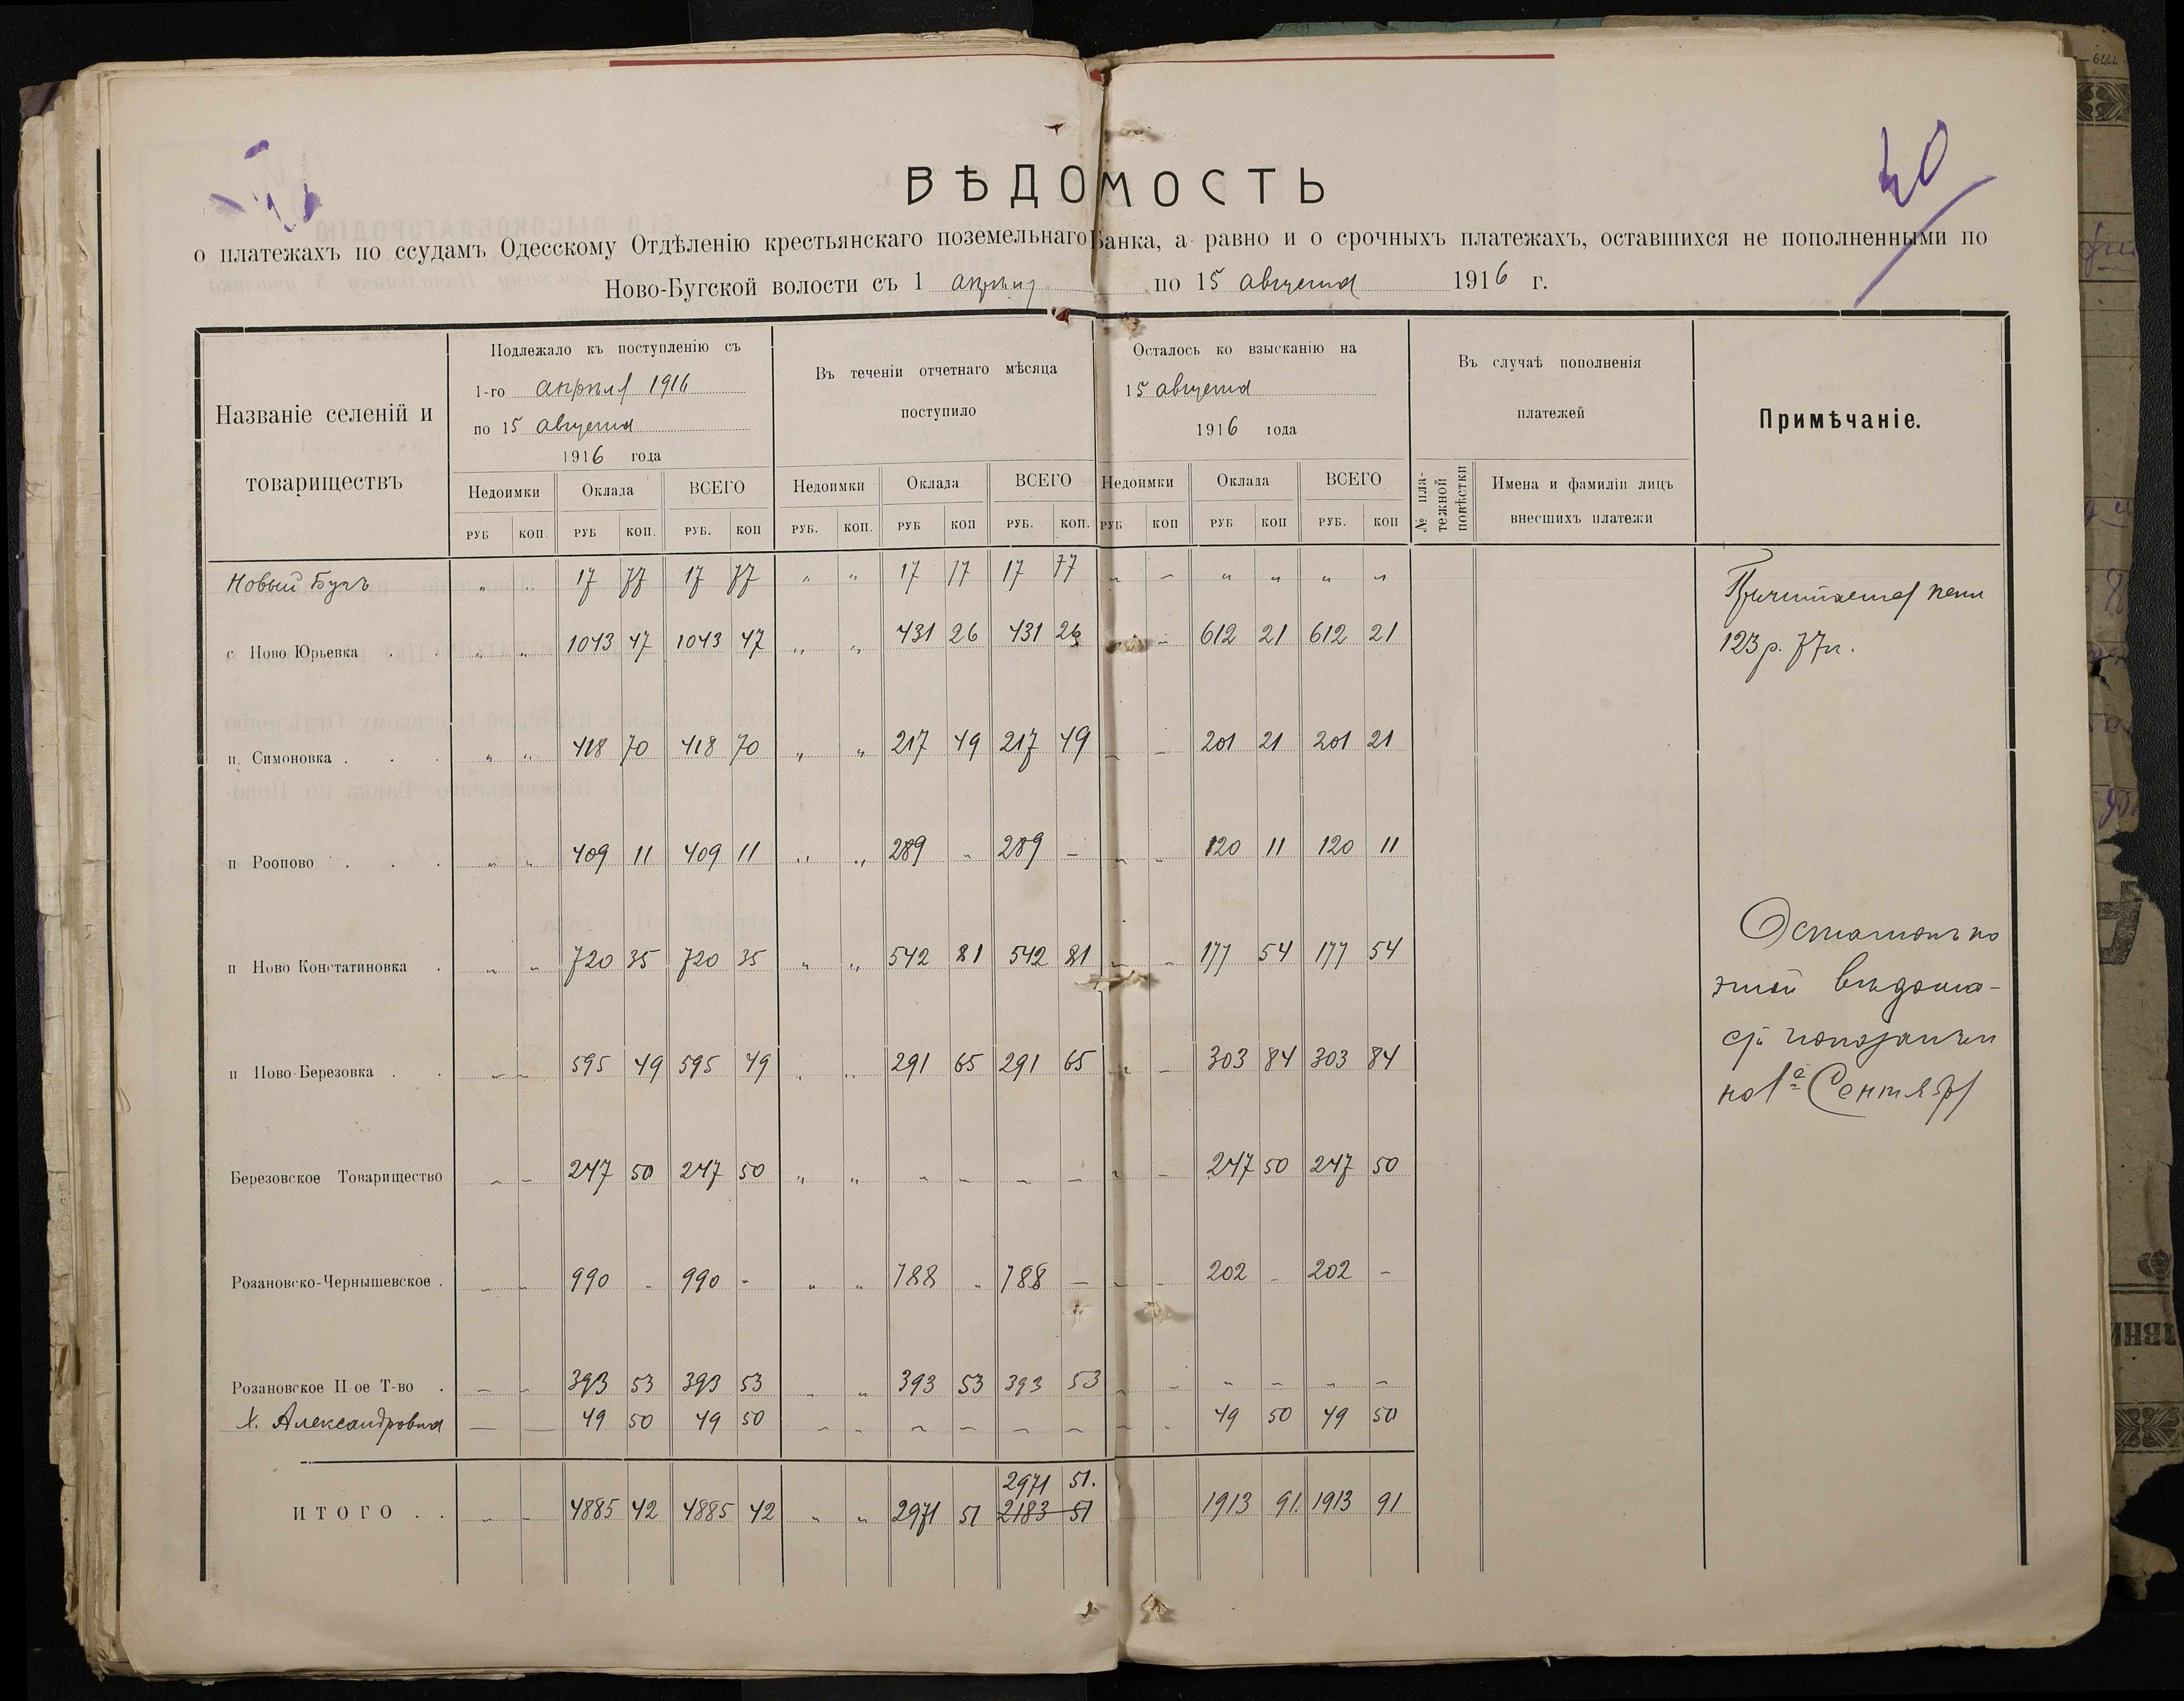 40
ВѢДОМОСТЬ
о платежахъ по ссудамъ Одесскому Отдѣленію крестьянскаго поземельнаго Банка, а равно и о срочныхъ платежахъ, оставшихся не пополненными по
Ново-Бугской волости съ 1 апрѣля по 15 августа 1916 г.
Названіе селеній и товариществъ
Подлежало къ поступленію съ
1-го апрѣля 1916
по 15 августа
1916 года
Въ теченіи отчетнаго мѣсяца
поступило
Осталось ко взысканію на
15 августа
1916 года
Въ случаѣ пополненія
платежей
Примѣчаніе.
Недоимки Оклада ВСЕГО Недоимки Оклада ВСЕГО Недоимки Оклада ВСЕГО
№ платежной повѣстки
Имена и фамиліи лицъ
внесшихъ платежи
РУБ КОП. РУБ КОП. РУБ. КОП РУБ. КОП. РУБ КОП РУБ. КОП. РУБ КОП РУБ КОП РУБ. КОП
Новый Бугъ „ „ 17 77 17 77 „ „ 17 77 17 77 – – „ „ „ „
с Ново Юрьевка . . „ „ 1043 47 1043 47 „ „ 431 26 431 26 – – 612 21 612 21
п. Симоновка . . . „ „ 418 70 418 70 „ „ 217 49 217 49 – – 201 21 201 21
п Роопово . . . „ „ 409 11 409 11 „ „ 289 – 289 – – – 120 11 120 11
п Ново Констатиновка . „ „ 720 35 720 35 „ „ 542 81 542 81 – – 177 54 177 54
п Ново-Березовка . . – – 595 49 595 49 „ „ 291 65 291 65 – – 303 84 303 84
Березовское Товарищество – – 247 50 247 50 „ „ – – – – – – 247 50 247 50
Розановско-Чернышевское . – – 990 – 990 – „ „ 788 „ 788 – – – 202 – 202 –
Розановское II-ое Т-во . – – 393 53 393 53 „ „ 393 53 393 53 – – – – – –
Х. Александровка – – 49 50 49 50 – – – – – – – – 49 50 49 50
2971 51.
ИТОГО . . – – 4885 42 4885 42 „ „ 2971 51 2183 51 1913 91. 1913 91
Причитается пени
123 р. 77 к.
Остатокъ по
этой вѣдомо-
сти показанъ
на 1е Сентября